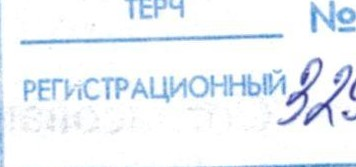 ТЕРЧ №
РЕГИСТРАЦИОННЫЙ 329